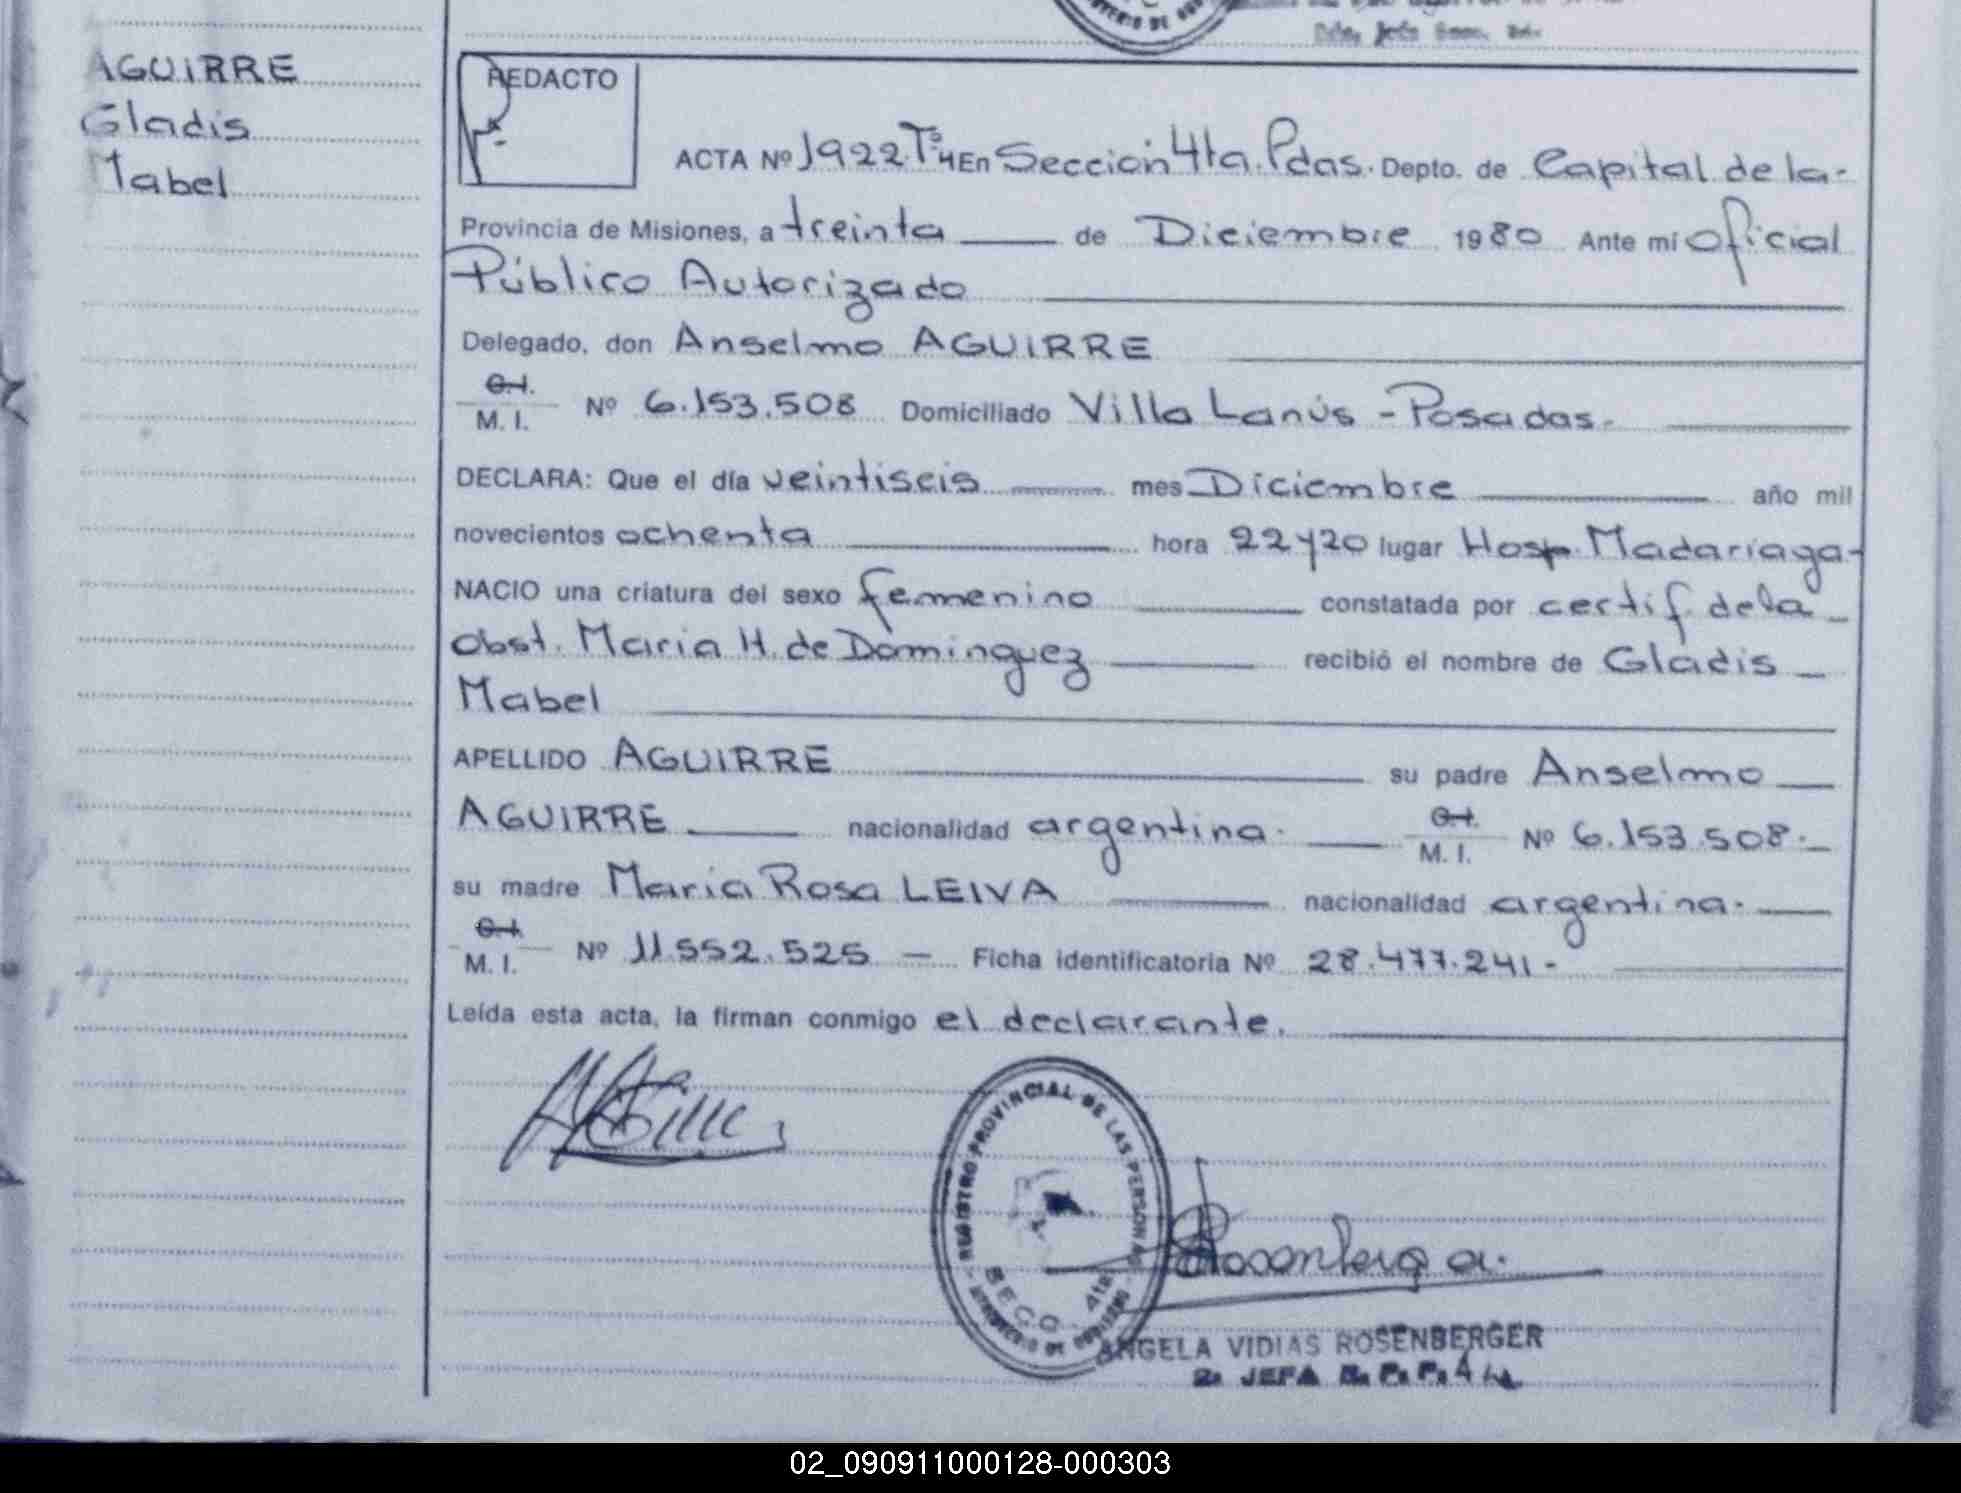 AGUIRRE
Gladis
Mabel
REDACTO
ACTA Nº 1922 Tº 4 En Sección 4ta. Pdas. Depto. de Capital de la-
Provincia de Misiones, a treinta de Diciembre 1980 Ante mí Oficial
Público Autorizado
Delegado, don Anselmo AGUIRRE
C.I.
M. I. Nº 6.153.508 Domiciliado Villa Lanús - Posadas.
DECLARA: Que el día veintiseis mes Diciembre año mil
novecientos ochenta hora 22y20 lugar Hosp. Madariaga-
NACIO una criatura del sexo femenino constatada por certif. de la
obst. Maria H. de Dominguez recibió el nombre de Gladis
Mabel
APELLIDO AGUIRRE su padre Anselmo
AGUIRRE nacionalidad argentina. C.I. M. I. Nº 6.153.508.-
su madre Maria Rosa LEIVA nacionalidad argentina.
C.I.
M. I. Nº 11.552.525 - Ficha identificatoria Nº 28.477.241-
Leída esta acta, la firman conmigo el declarante.
REGISTRO PROVINCIAL DE LAS PERSONAS
SECC. 4ta
MINISTERIO DE GOBIERNO
Rosenberg a.
ANGELA VIDIAS ROSENBERGER
2a JEFA R. P. P. 4ta
02_090911000128-000303